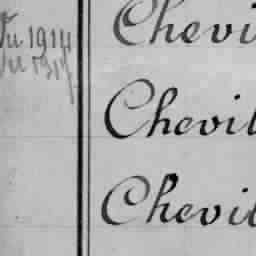 Vu 1914 Chevi
Vu 1917
Chevil
Chevil